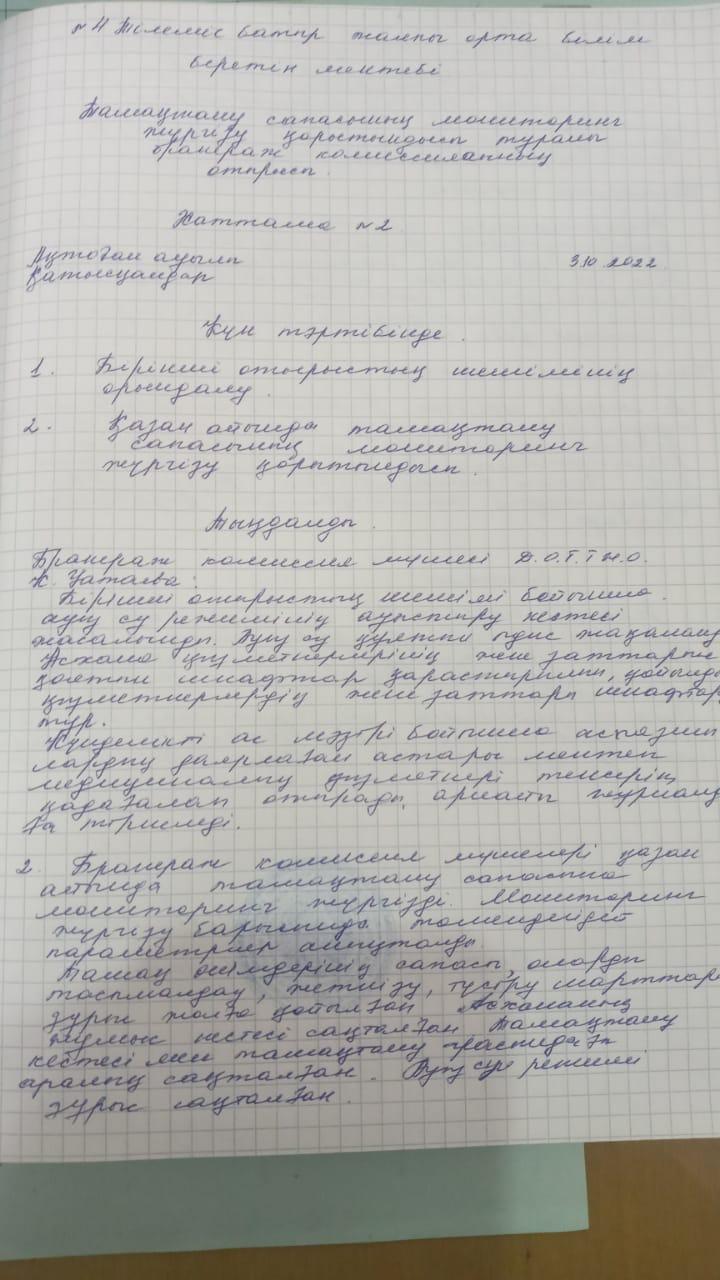 №4 Тілеміс батыр жалпы орта білім
беретін мектебі
Тамақтану сапасының мониторинг
жүргізу қорытындысы туралы
бракераж комиссиясының
отырысы.
Хаттама №2
Ақтоған ауылы
3.10.2022
Қатысқандар
Күн тәртібінде.
1. Бірінші отырыстың шешімінің
орындалу.
2. Қазан айында тамақтану
сапасының мониторинг
жүргізу қорытындысы.
Тыңдалды.
Бракераж комиссия мүшесі Д.О.Т.Т.Н.О.
К.
Бірінші отырыстың шешімі бойынша.
ауыз су режимінің ауыстыру кестесі
жасалынды. Ауыз су құятын ыдыс тазаланды
Асхана қызметкерлерінің жеке заттарын
қоятын шкафтар қарастырылып, қойылды
қызметкерлердің жеке заттары шкафтар
тұр.
Күнделікті ас мәзірі бойынша аспазшы
лардың даярлаған астары мектеп
медициналық қызметкері тексеріп
қадағалап отырады, арнайы журналд
ға тіркеледі.
2. Бракераж комиссия мүшелері қазан
айында тамақтану сапасына
мониторинг жүргізді. Мониторинг
жүргізу барысында төмендегідей
параметрлер анықталды.
Тамақ өнімдерінің сапасы, оларды
тасымалдау, жеткізу, түсіру шарттары
дұрыс жолға қойылған Асхананың
жұмыс кестесі сақталған Тамақтану
кестесі мен тамақтану арасындағы
аралық сақталған. Ауыз су режимі
дұрыс сақталған.